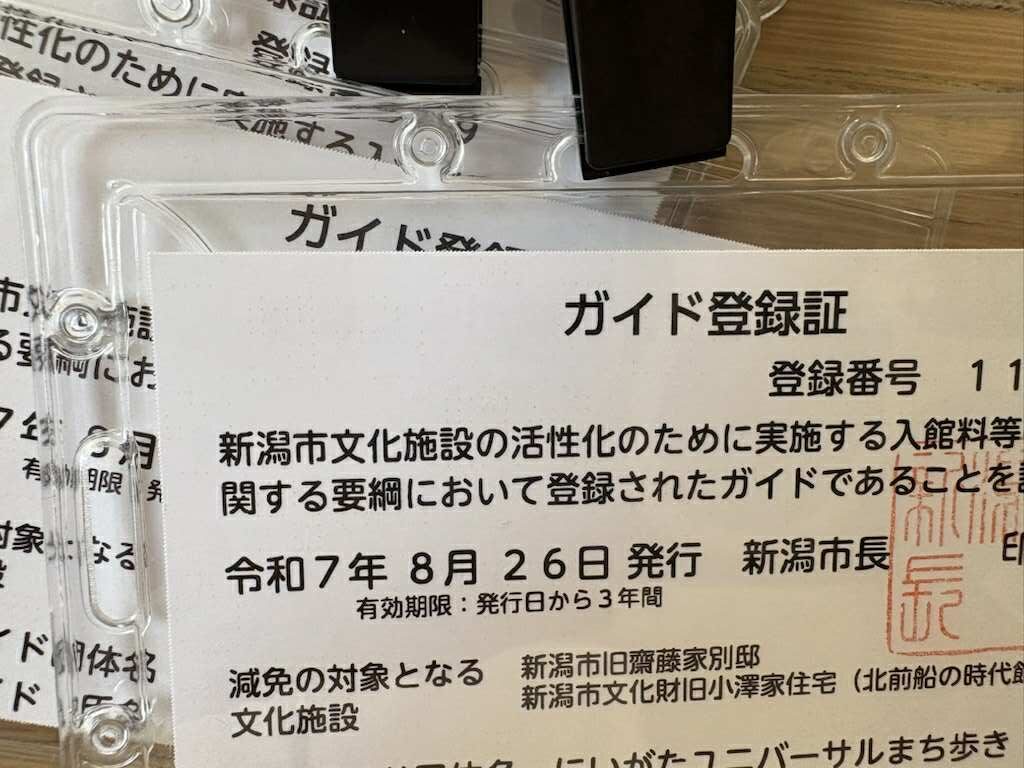 性化のために
登録
ガイド登録
ガイド登録証
登録番号 11
新潟市文化施設の活性化のために実施する入館料等
関する要綱において登録されたガイドであることを
令和7年 8月 26日 発行 新潟市長 印
有効期限：発行日から3年間
減免の対象となる
文化施設
新潟市旧齋藤家別邸
新潟市文化財旧小澤家住宅（北前船の時代館
にいがたユニバーサルまち歩き